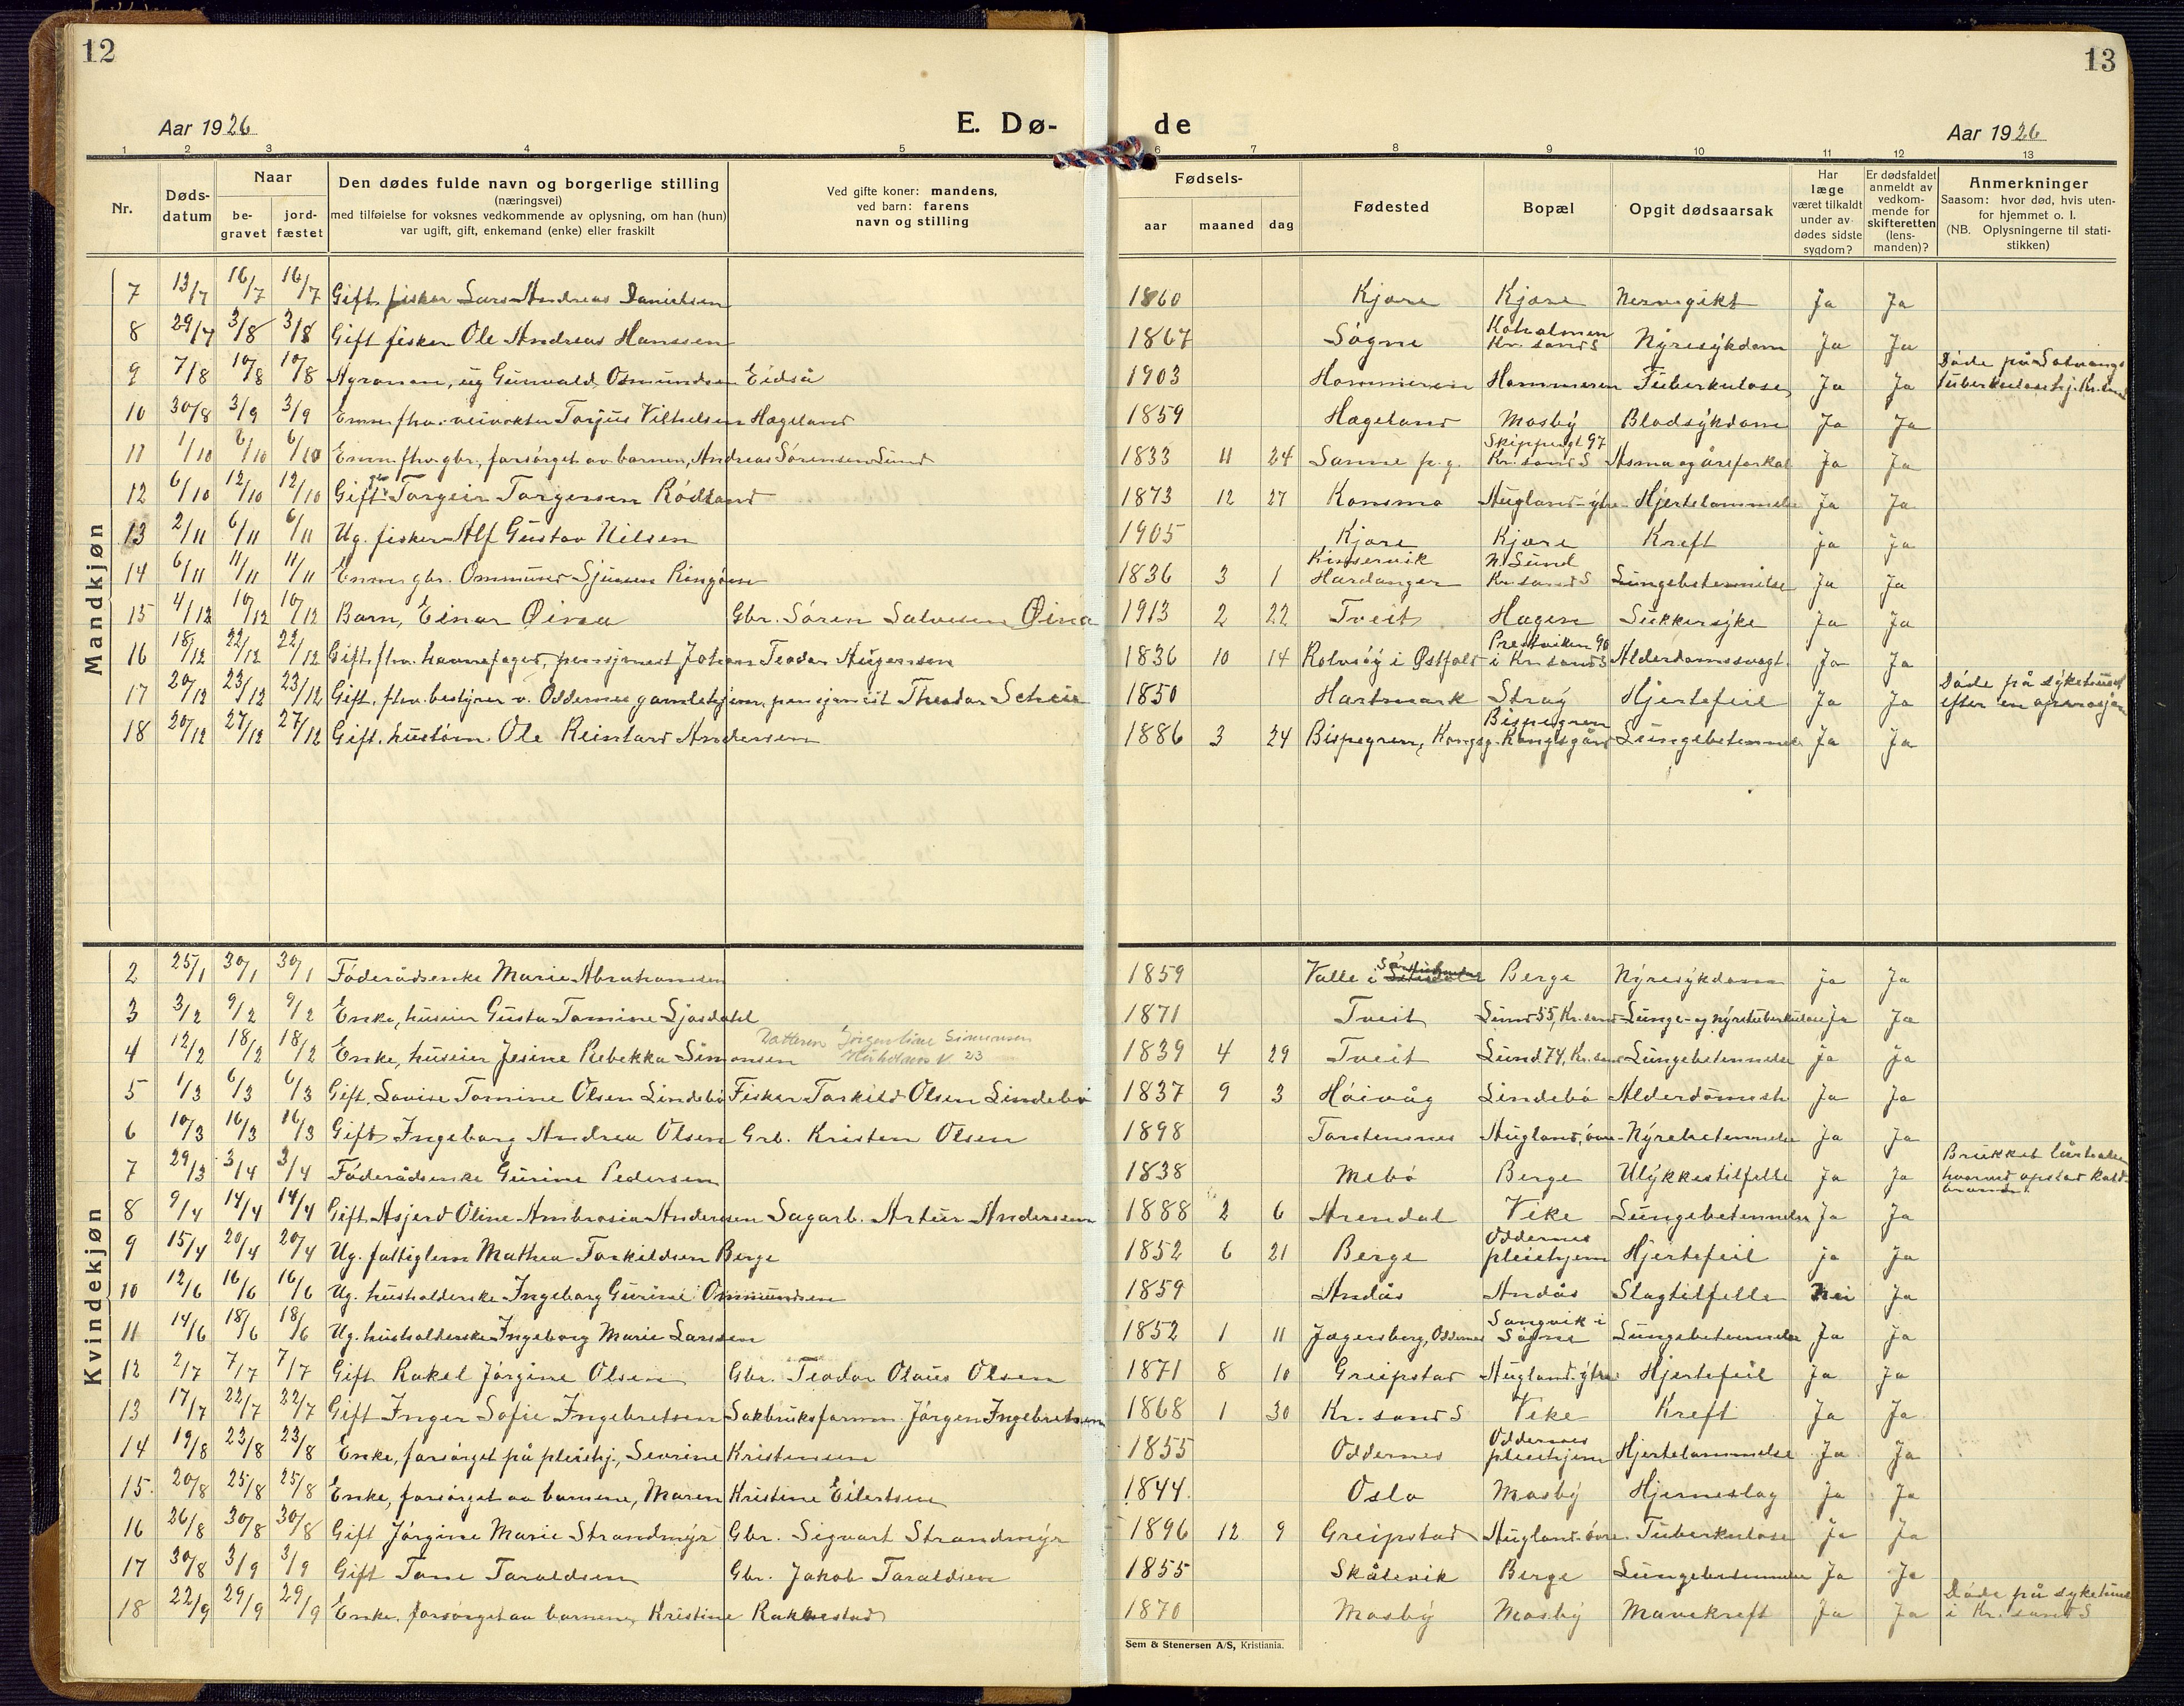 12
Aar 1926
E. Dø-
1 2 3 4 5
Nr.
Døds-
datum
Naar
be-
gravet
jord-
fæstet
Den dødes fulde navn og borgerlige stilling
(næringsvei)
med tilføielse for voksnes vedkommende av oplysning, om han (hun)
var ugift, gift, enkemand (enke) eller fraskilt
Ved gifte koner: mandens,
ved barn: farens
navn og stilling
Mandkjøn
7 13/7 16/7 16/7 Gift fisker Lars Andreas Danielsen
8 29/7 3/8 3/8 Gift fisker Ole Andreas Hanssen
9 7/8 10/8 10/8 Agronom, ug Gunvald Osmundsen Eidså
10 30/8 3/9 3/9 Enm. fhv. veivokter Torjus Vilhelsen Hægeland
11 1/10 6/10 6/10 Enm. fhv. gbr., forsørget av barnen, Andreas Sörensen Lund
12 6/10 12/10 12/10 Gift gbr Torgeir Torgersen Rödland
13 2/11 6/11 6/11 Ug. fisker Alf Gustav Nilsen
14 6/11 11/11 11/11 Enm. gbr. Ommund Sjursen Ringöen
15 4/12 10/12 10/12 Barn, Einar Øinaa Gbr. Sören Salvesen Øina
16 18/12 22/12 22/12 Gift. fhv. havnefoged, pensjonist Johan Teodor Jörgensen
17 20/12 23/12 23/12 Gift. fhv. bestyrer v. Oddernes gamlehjem, pensjonist Theodor Scheie
18 20/12 27/12 27/12 Gift. hustöm. Ole Reinhard Andersen
Kvindekjøn
2 25/1 30/1 30/1 Föderådsenke Marie Abrahamsen
3 3/2 9/2 9/2 Enke, huseier Gusta Tomine Sjösdahl
4 12/2 18/2 18/2 Enke, huseier Jesine Rebekka Simonsen Datteren Jörgentine Simonsen
23
5 1/3 6/3 6/3 Gift. Lovise Tomine Olsen Lindebö Fisker Torkild Olsen Lindebö
6 10/3 16/3 16/3 Gift Ingeborg Andrea Olsen Grb. Kristen Olsen
7 29/3 3/4 3/4 Föderådsenke Gurine Pedersen
8 9/4 14/4 14/4 Gift. Asjerd Oline Ambrosia Andersen Sagarb. Artur Andersen
9 15/4 20/4 20/4 Ug. fattiglem Mathea Torkildsen Berge
10 12/6 16/6 16/6 Ug. husholderske Ingeborg Gurine Ommundsen
11 14/6 18/6 18/6 Ug. husholderske Ingeborg Marie Larssen
12 2/7 7/7 7/7 Gift Rakel Jörgine Olsen Gbr. Teodor Olaus Olsen
13 17/7 22/7 22/7 Gift Inger Sofie Ingebretsen Sakbruksform. Jörgen Ingebretsen
14 19/8 23/8 23/8 Enke, forsörget på pleiehj., Severine Kristensen
15 20/8 25/8 25/8 Enke, forsörget av barnene, Maren Kristine Eilertsen
16 26/8 30/8 30/8 Gift Jörgine Marie Strandmyr Gbr. Sigvart Strandmyr
17 30/8 3/9 3/9 Gift Tone Taraldsen Gbr. Jakob Taraldsen
18 22/9 29/9 29/9 Enke. forsörget av barnene, Kristine Rakkestad
13
de
Aar 1926
6 7 8 9 10 11 12 13
Fødsels-
aar
maaned
dag
Fødested
Bopæl
Opgit dødsaarsak
Har
læge
været tilkaldt
under av-
dødes sidste
sygdom?
Er dødsfaldet
anmeldt av
vedkom-
mende for
skifteretten
(lens-
manden)?
Anmerkninger
Saasom: hvor død, hvis uten-
for hjemmet o. l.
(NB. Oplysningerne til stati-
stikken)
1860 Kjøre Kjøre Nervegikt Ja Ja
1867 Søgne Koholmen Kr.sand S Nyresykdom Ja Ja
1903 Hommeren Hommeren Tuberkulose Ja Ja Döde på Solvangs tuberkulosehj. Kr.sand
1859 Hægeland Mosby Blodsykdom Ja Ja
1833 11 24 Sanne p.g. Skippergt 97 Kr.sand S Asma og åreforkal. Ja Ja
1873 12 27 Konsmo Augland-ytre Hjertelammelse Ja Ja
1905 Kjøre Kjøre Kreft ja ja
1836 3 1 Kinservik Hardanger N. Lund Kr.sand S Lungebetennelse Ja Ja
1913 2 22 Tveit Hagen Sukkersyke Ja Ja
1836 10 14 Rolvsöy i Østfold Prestviken 90 i Kr.sand S Alderdomssvagt. Ja Ja
1850 Hartmark Stray Hjertefeil Ja Ja Döde på sykehuset efter en operasjon
1886 3 24 Bispegren, Kongsg. Bispegren Kongsgård Lungebetennels Ja Ja
1859 Valle i Berge Nyresykdom ja Ja
1871 Tveit Lund 55, Kr.sand Lunge- og nyretuberkulose Ja Ja
1839 4 29 Tveit Lund 74, Kr.sand Lungebetennelse ja Ja
1837 9 3 Höivåg Lindebö Alderdomssv. Ja Ja
1898 Torstensnes Augland, övre Nyrebetennelse Ja Ja
1838 Mebö Berge Ulykkestilfelle Ja Ja Brukket lårhalsen hvorved opstod koldbrand
1888 2 6 Arendal Vike Lungebetennelse Ja Ja
1852 6 21 Berge Oddernes pleiehjem Hjertefeil ja Ja
1859 Andås Andås Slagtilfelle Nei Ja
1852 1 11 Jægersberg, Oddernes Sangvik i Søgne Lungebetennelse Ja Ja
1871 8 10 Greipstad Augland-ytre Hjertefeil Ja Ja
1868 1 30 Kr.sand S Vike Kreft Ja Ja
1855 Oddernes Oddernes pleiehjem Hjertelammelse Ja Ja
1844 Oslo Mosby Hjerneslag Ja Ja
1896 12 9 Greipstad Augland-övre Tuberkulose Ja Ja
1855 Skålevik Berge Lungebetennelse Ja Ja
1870 Mosby Mosby Mavekreft Ja Ja Döde på sykehus i Kr.sand S
Sem & Stenersen A/S, Kristiania.